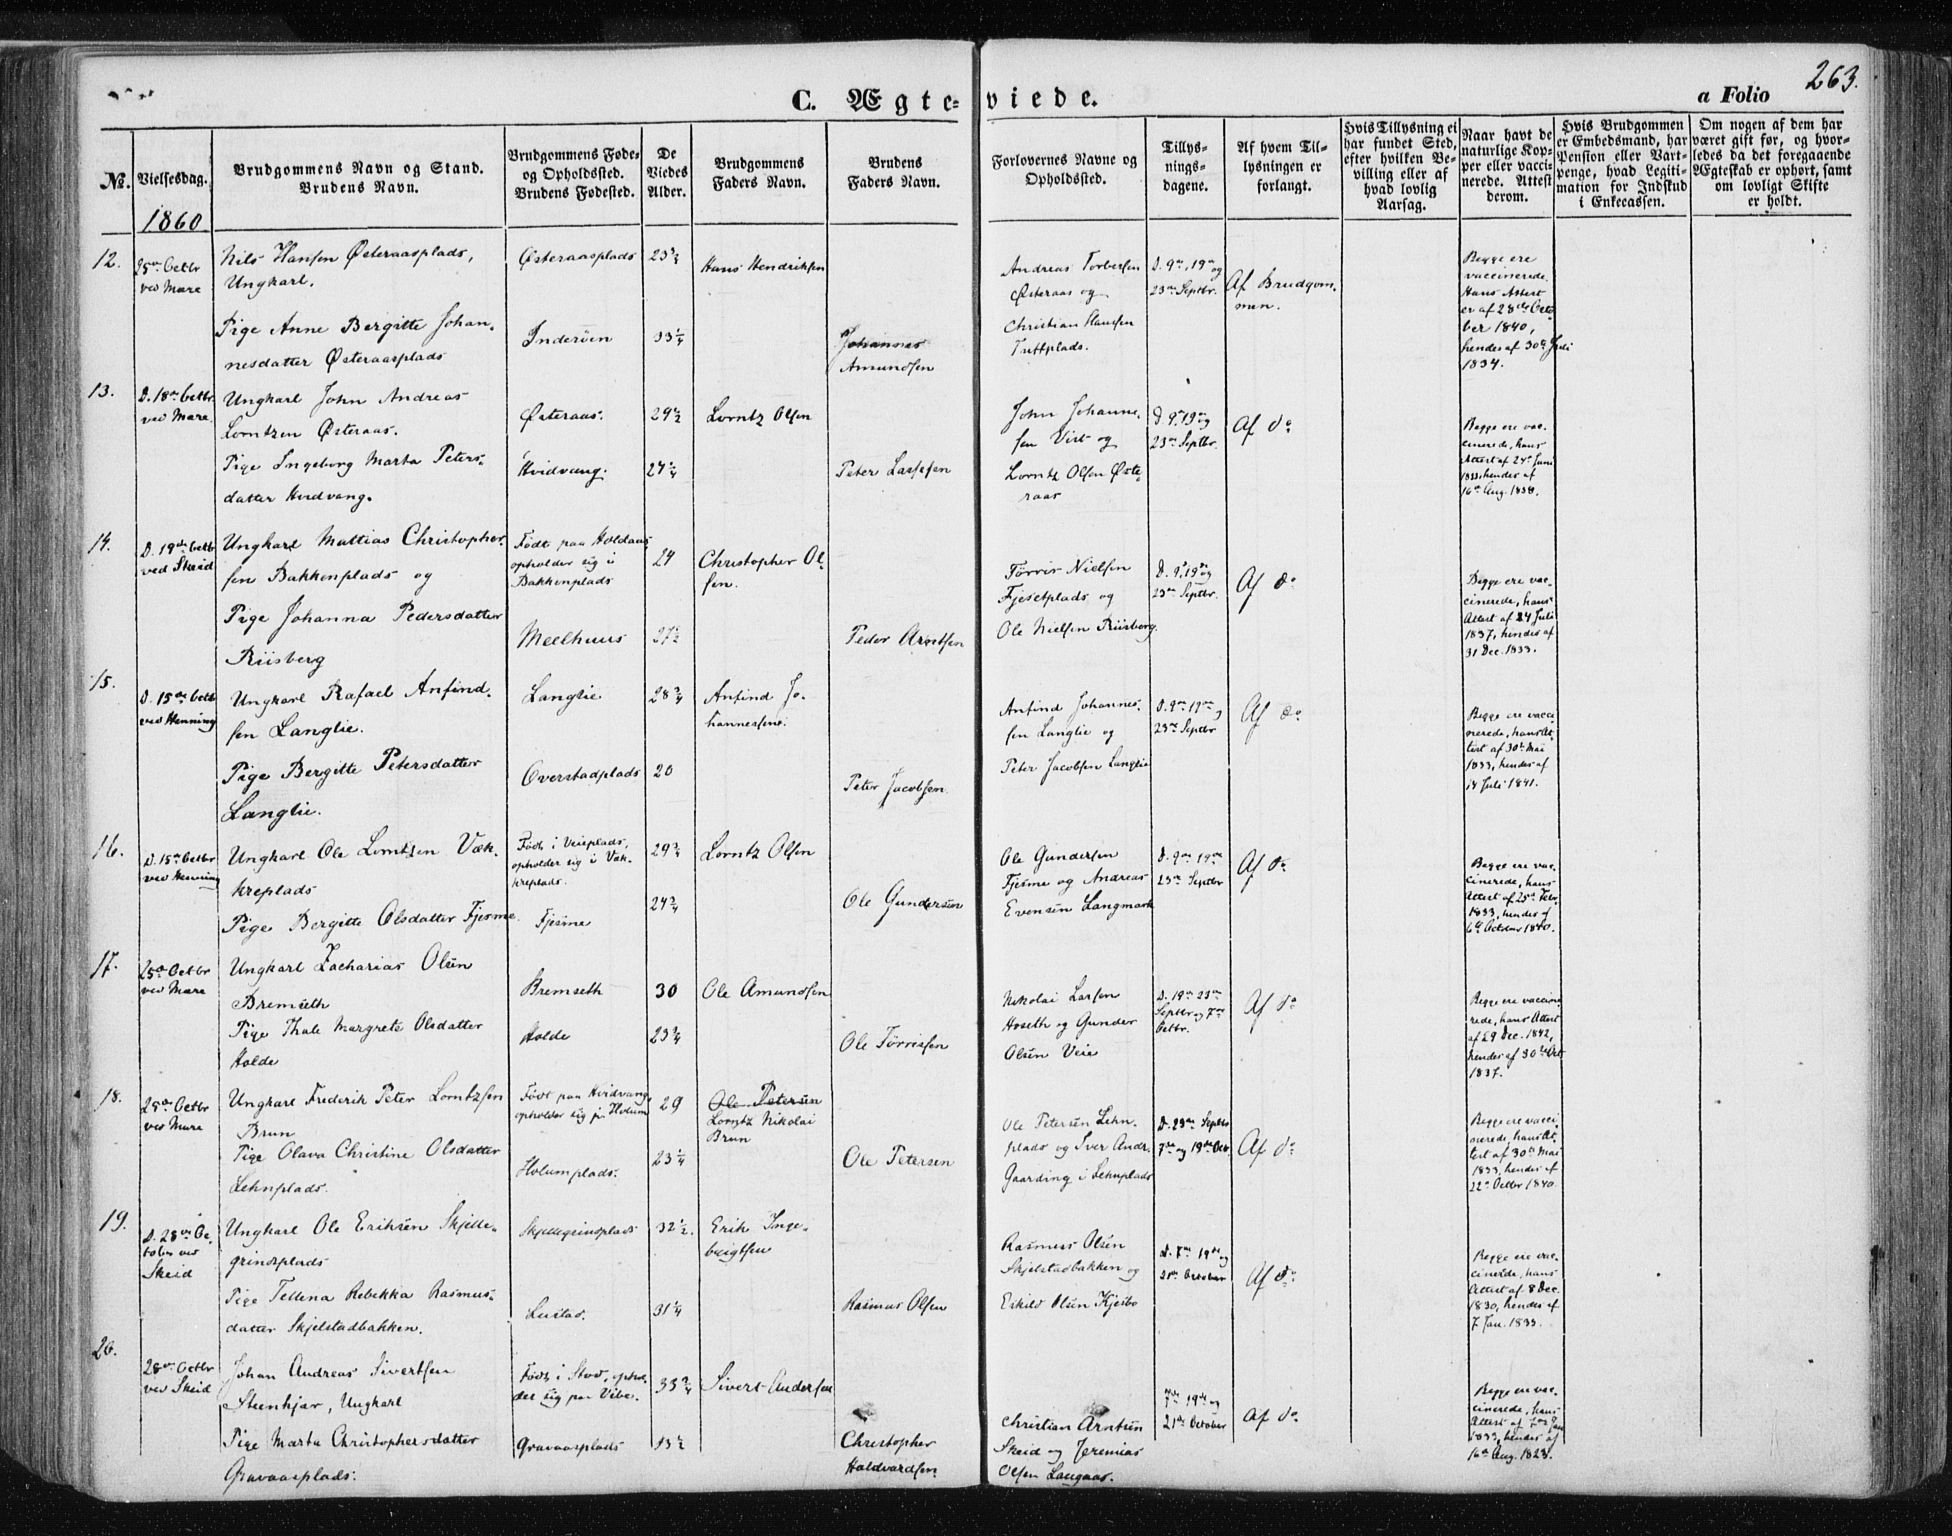 263.
C. Ægte-viede.
a Folio
No.
Vielsesdag.
Brudgommens Navn og Stand.
Brudens Navn.
Brudgommens Føde-
og Opholdssted.
Brudens Fødested.
De
Viedes
Alder.
Brudgommens
Faders Navn.
Brudens
Faders Navn.
Forlovernes Navne og
Opholdssted.
Tillys-
nings-
dagene.
Af hvem Til-
lysningen er
forlangt.
Hvis Tillysning ei
har fundet Sted,
efter hvilken Be-
villing eller af
hvad lovlig
Aarsag.
Naar havt de
naturlige Kop-
per eller vacci-
nerede. Attest
derom.
Hvis Brudgommen
er Embedsmand, har
Pension eller Vart-
penge, hvad Legiti-
mation for Indskud
i Enkecassen.
Om nogen af dem har
været gift før, og hvor-
ledes da det foregaaende
Ægteskab er ophørt, samt
om lovligt Skifte
er holdt.
1860
12.
25de Octbr
ved Mære
Nils Hansen Østeraasplads,
Ungkarl.
Pige Anne Bergitte Johan-
nesdatter Østeraasplads
Østeraasplads
Inderøen
23 3/4
33 1/4
Hans Hendriksen
Johannes
Amundsen
Andreas Torbersen
Østeraas og
Christian Hansen
Tuftplads.
D. 9de, 19de og
23de Septbr.
Af Brudgom-
men.
Begge ere
vaccinerede.
Hans Attest
er af 28de Octo
ber 1840,
hendes af 30te Juli
1834.
13.
D. 18de Octbr.
ved Mære.
Ungkarl John Andreas
Lorntzen Østeraas.
Pige Ingeborg Marta Peters-
datter Hvidvang.
Østeraas.
Hvidvang.
29 1/2
27 1/4
Lorntz Olsen
Peter Lassesen
John Johanne-
sen Vist og
Lorntz Olsen Øste-
raas
D. 9de, 19de og
23de Septbr.
Af do
Begge ere vac-
cinerede, hans
Attest af 24de Juni
1833, hendes af
16de Aug. 1838.
14.
D. 19de Octbr
ved Skeid
Ungkarl Mattias Christopher-
sen Bakkenplads og
Pige Johanna Pedersdatter
Riisberg
Født paa Holdaas,
opholder sig i
Bakkenplads
Meelhuus
24
27 1/2
Christopher Ol-
sen.
Peder Arntsen
Tørris Nielsen
Fjesetplads og
Ole Nielsen Riisberg.
D. 9de, 19de og
23de Septbr.
Af do
Begge ere vac-
cinerede, hans
Attest af 24 Juli
1837, hendes af
31 Dec. 1833.
15.
D. 15de Octb
ved Henning
Ungkarl Rafael Anfind-
sen Langlie.
Pige Bergitte Petersdatter
Langlie.
Langlie
Overstadplads
28 3/4
20
Anfind Jo-
hannessen.
Peter Jacobsen.
Anfind Johannes-
sen Langlie og
Peter Jacobsen Langlie
D. 9de, 19de og
23de Septbr
Af do
Begge ere vacci-
nerede, hans At-
test af 30te Mai
1833, hendes af
14 Juli 1841.
16.
D. 15de Octbr
ved Henning
Ungkarl Ole Lorntzen Væk-
kreplads
Pige Bergitte Olsdatter Fjesme.
Født i Veieplads,
opholder sig i Væk-
kreplads.
Fjesme
29 3/4
24 3/4
Lorntz Olsen
Ole Gundersen
Ole Gundersen
Fjesme og Andreas
Evensen Langmark
D. 9de, 19de
23de Septbr
Af do
Begge ere vac-
cinerede, hans
Attest af 25de Febr.
1833, hendes af
6te October 1840.
17.
25de Octbr
ved Mære
Ungkarl Zacharias Olsen
Bremseth
Pige Thale Margrete Olsdatter
Holde
Bremseth
Holde
30
23 3/4
Ole Amundsen
Ole Tørrissen
Nikolai Larsen
Hoseth og Gunder
Olsen Veie
D. 19de 23de
Septbr og 7de
Octbr.
Af do
Begge ere vaccine-
rede, hans Attest
af 29 Dec. 1842,
hendes af 30te Oct
1837.
18.
25de Octbr
ved Mære
Ungkarl Frederik Peter Lorntzsen
Brun
Pige Olava Christine Olsdatter
Lehnplads.
Født paa Hvidvang,
opholder sig p. Holum
Holumplads.
29
23 1/4
Ole Petersen
Lorntz Nikolai
Brun
Ole Petersen
Ole Petersen Lehn-
plads og Iver Andr.
Gaarding i Lehnplads
D. 23de Septbr
7de og 19de Octbr
Af do
Begge ere vacci-
nerede, hans At-
test af 30te Mai
1833, hendes af
22de Octbr 1840.
19.
D. 28de Oc-
tober ved
Skeid
Ungkarl Ole Eriksen Skjelle-
grindsplads
Pige Tellena Rebekka Rasmus-
datter Skjelstadbakken.
Skjellegrindsplads
Lustad.
32 1/2.
31 1/4
Erik Inge-
brigtsen
Rasmus Olsen
Rasmus Olsen
Skjelstadbakken og
Eskild Olsen Kjesbo
D. 7de 19de og
21de October
Af do
Begge ere vac-
cinerede, hans
Attest af 8 Dec.
1830, hendes af
7 Jan. 1833.
20.
28de Octbr
ved Skeid
Johan Andreas Sivertsen
Steenkjær, Ungkarl
Pige Marta Christophersdatter
Gravaasplads.
Født i Stod, ophol-
der sig paa Vibe.
Gravaasplads
33 3/4
Sivert Andersen
Christopher
Haldvardsen
Christian Arntsen
Skeid og Jeremias
Olsen Langaas.
7de 19de og
21de October
Af do
Begge ere vac-
cinerede, hans
Attest af 7de Jan
1833, hendes af
16de Aug. 1823.